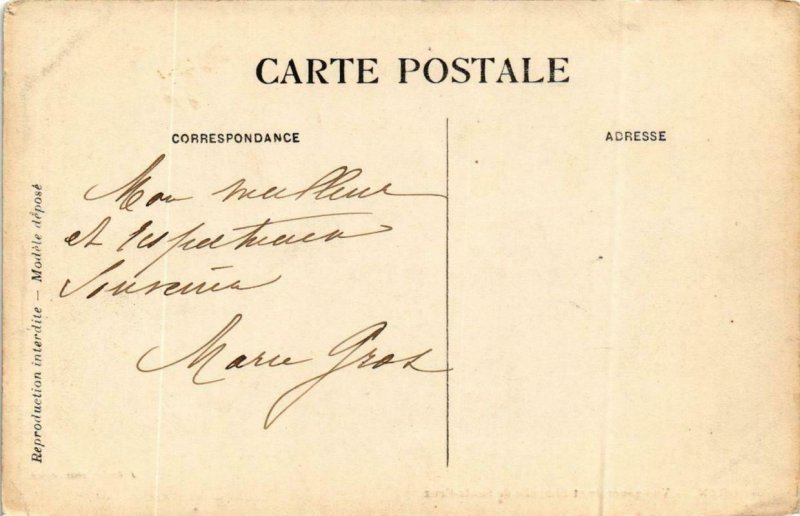 CARTE POSTALE
CORRESPONDANCE
ADRESSE
Mon meilleur
et respectueux
Souvenir
Marie Gros
Reproduction interdite — Modèle déposé